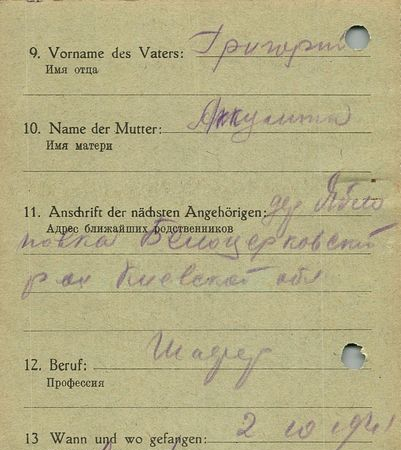 9. Vorname des Vaters: Григорий
Имя отца
10. Name der Mutter: Аккулина
Имя матери
11. Anschrift der nächsten Angehörigen: дер Ябло
Адрес ближайших родственников
новка Белоцерковский
р он Киевской обл
12. Beruf: Шофер
Профессия
13 Wann und wo gefangen: 2 10 1941